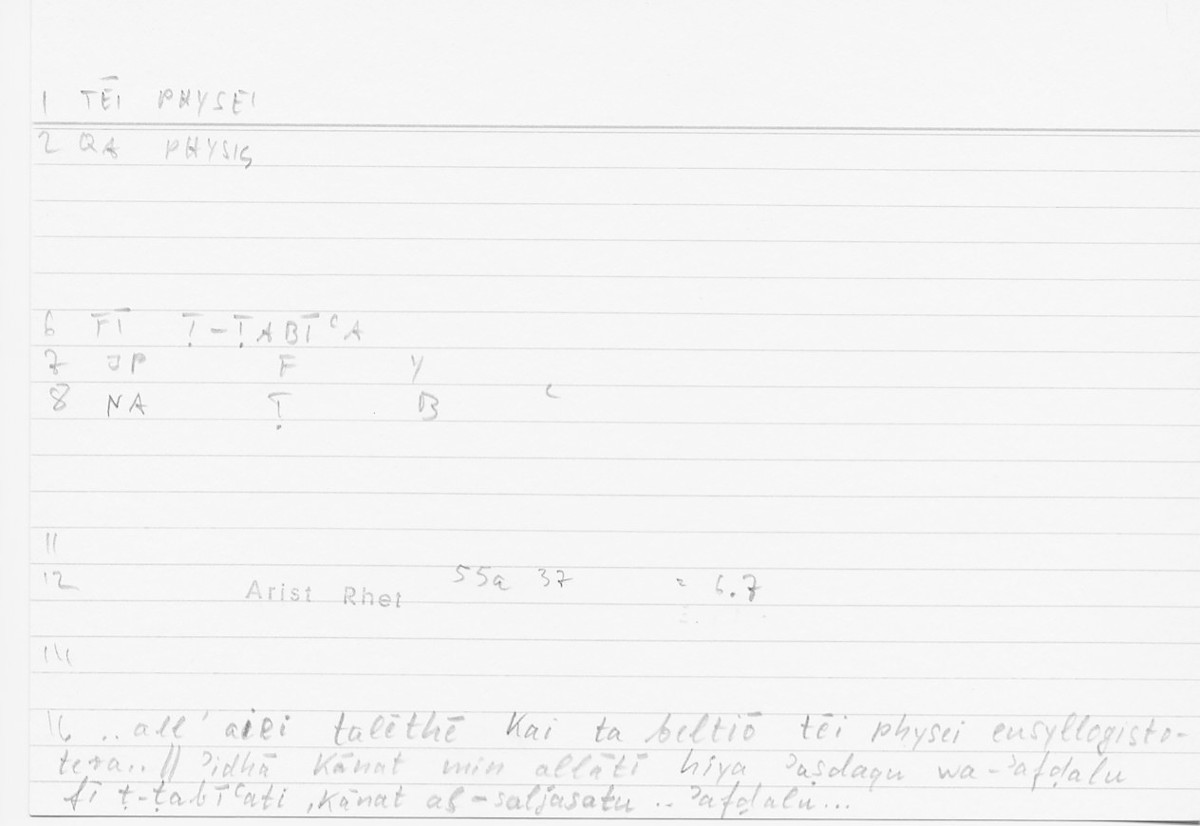 1 TĒI PHYSEI
2 QA PHYSIS
6 FĪ Ṭ-ṬABĪʿA
7 JP F Y
8 NA Ṭ B ʿ
11
12 Arist Rhet 55a 37 = 6.7
16 ..all' aiei talēthē kai ta beltiō tēi physei eusyllogisto-
tera..|| ʾidhā kānat min allātī hiya ʾaṣdaqu wa-ʾafḍalu
fī ṭ-ṭabīʿati, kānat as-saljasatu .. ʾafḍalu...